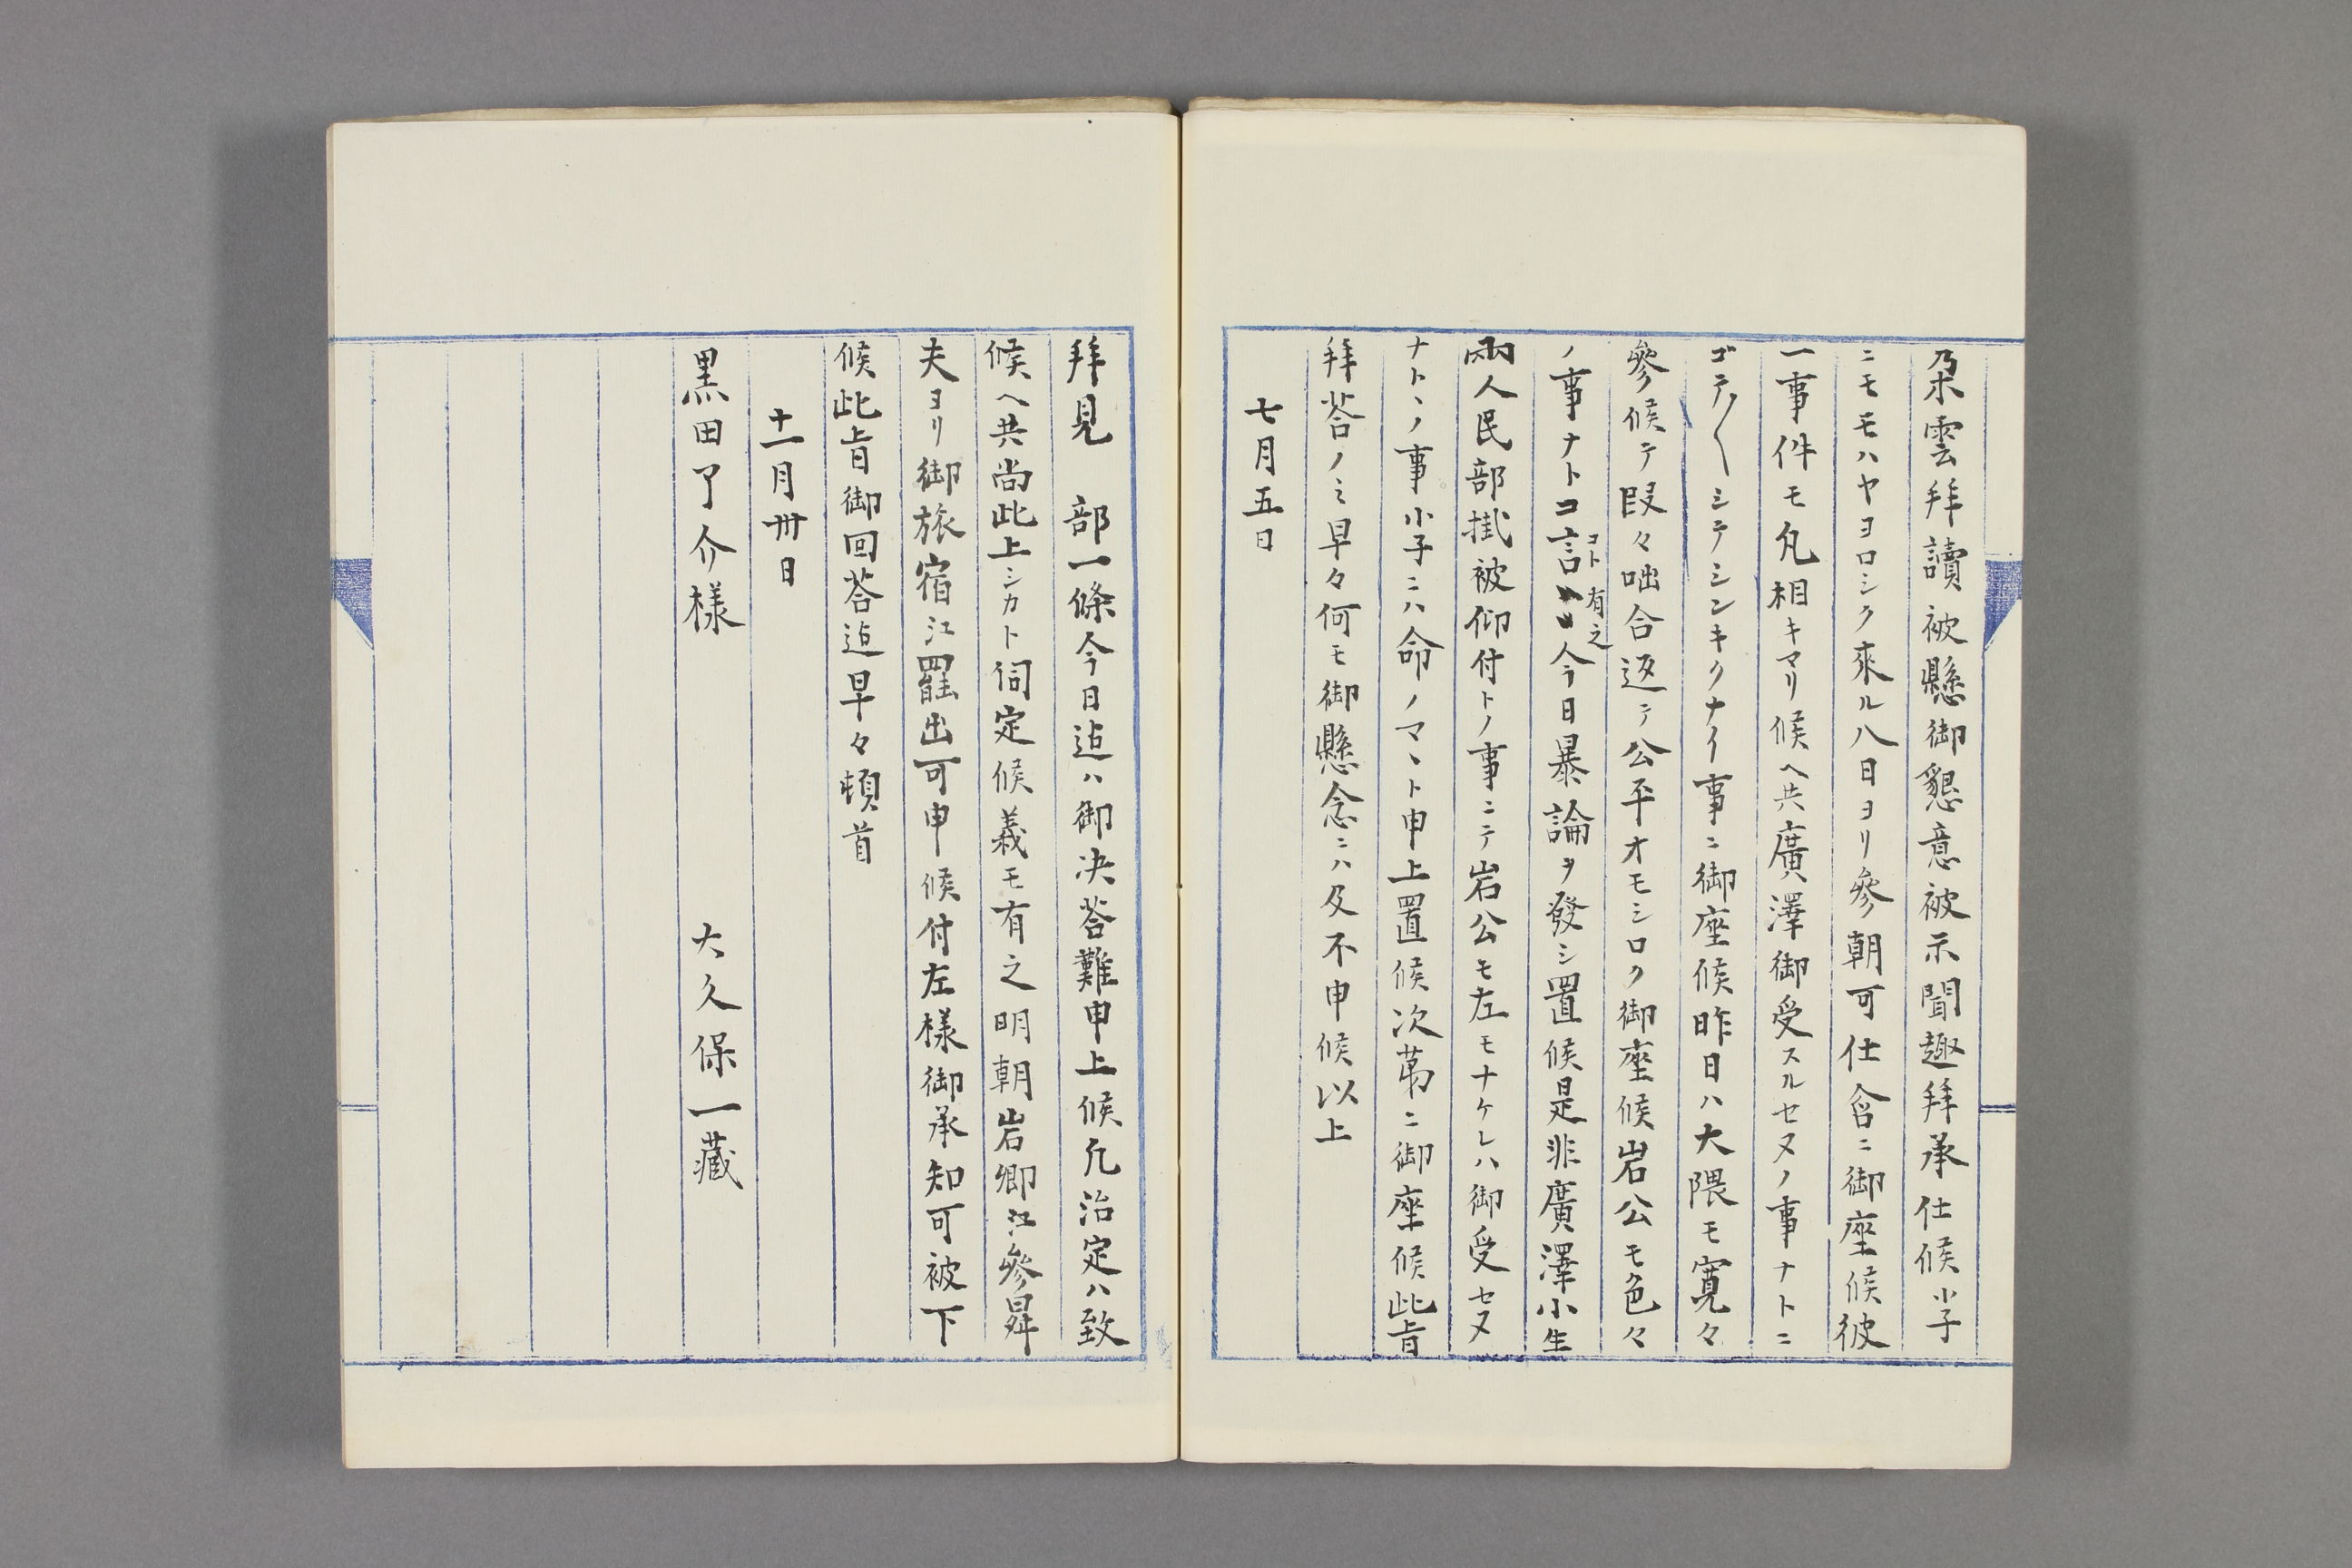 朶雲拜讀被懸御懇意被示聞趣拜承仕候小子
ニモモハヤヨロシク來ル八日ヨリ參朝可仕含ニ御座候彼
一事件モ凡相キマリ候ヘ共廣澤御受スルセヌノ事ナトニ
ゴテ〱シテシンキクナイ事ニ御座候昨日ハ大隈モ寛々
參候テ段々咄合返テ公平オモシロク御座候岩公モ色々
ノ事ナトコ言コト有之今日暴論ヲ發シ置候是非廣澤小生
兩人民部掛被仰付トノ事ニテ岩公モ左モナケレハ御受セヌ
ナトヽノ事小子ニハ命ノマヽト申上置候次第ニ御座候此旨
拜答ノミ早々何モ御懸念ニハ及不申候以上
七月五日
拜見 部一條今日迠ハ御决答難申上候凢治定ハ致
候ヘ共尚此上シカト伺定候義モ有之明朝岩卿江參昇
夫ヨリ御旅宿江罷出可申候付左樣御承知可被下
候此旨御回答迠早々頓首
十一月卅日
黒田了介樣 大久保一藏